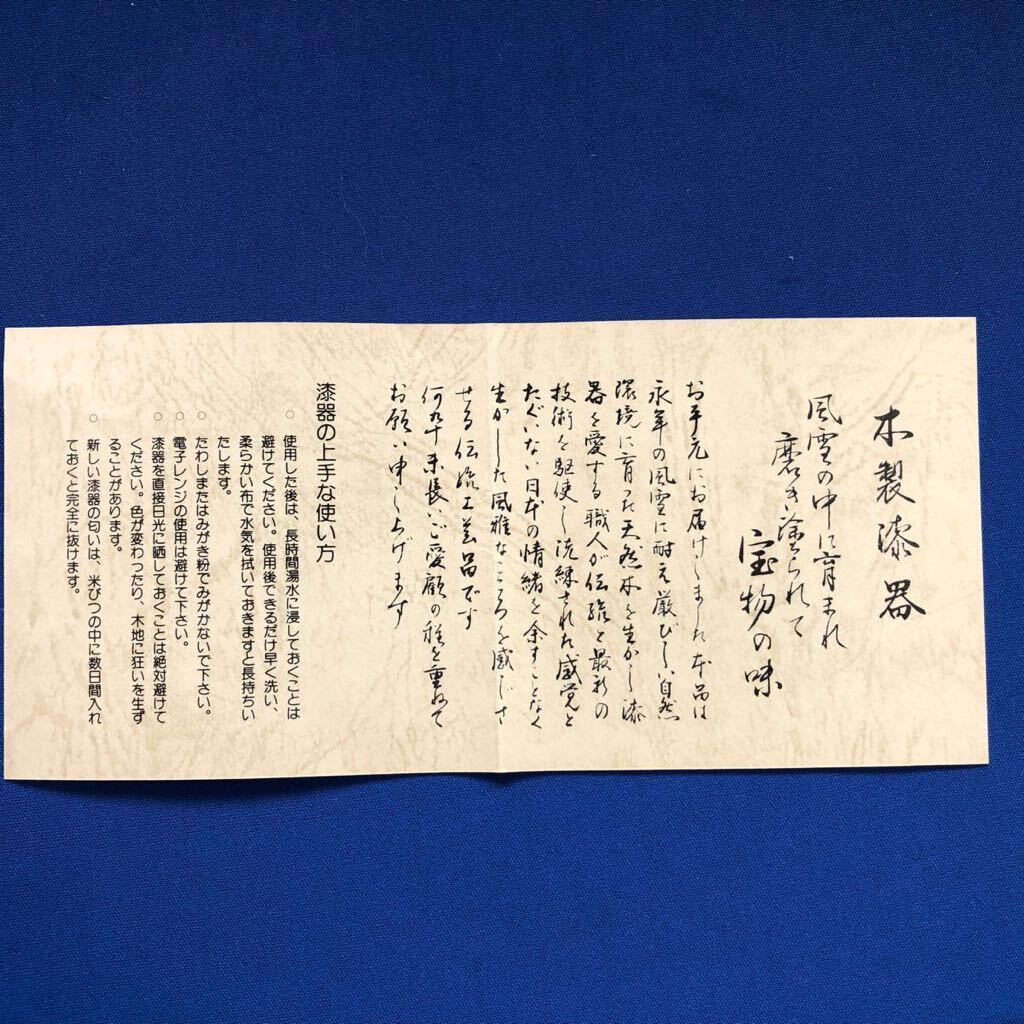 木製漆器
風雪の中に育まれ
磨き塗られて
宝物の味
お手元にお届けしました本品は
永年の風雪に耐え厳しい自然
環境に育った天然木を生かし漆
器を愛する職人が伝統と最新の
技術を駆使し洗練された感覚と
たぐいない日本の情緒を余すことなく
生かした風雅なこころを感じさ
せる伝統工芸品です
何卒末長いご愛顧の程を重ねて
お願い申し上げます
漆器の上手な使い方
○ 使用した後は、長時間湯水に浸しておくことは
避けてください。使用後できるだけ早く洗い、
柔らかい布で水気を拭いておきますと長持ちい
たします。
○ たわしまたはみがき粉でみがかないで下さい。
○ 電子レンジの使用は避けて下さい。
○ 漆器を直接日光に晒しておくことは絶対避けて
ください。色が変わったり、木地に狂いを生ず
ることがあります。
○ 新しい漆器の匂いは、米びつの中に数日間入れ
ておくと完全に抜けます。